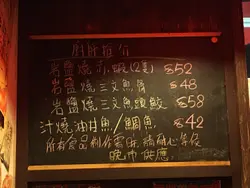 廚師推介
岩鹽燒赤蝦(2隻) $52
岩鹽燒三文魚骨 $48
岩鹽燒三文魚頭鮫 $58
汁燒油甘魚/鯛魚 $42
所有食品制作需時請耐心等候
晚市供應